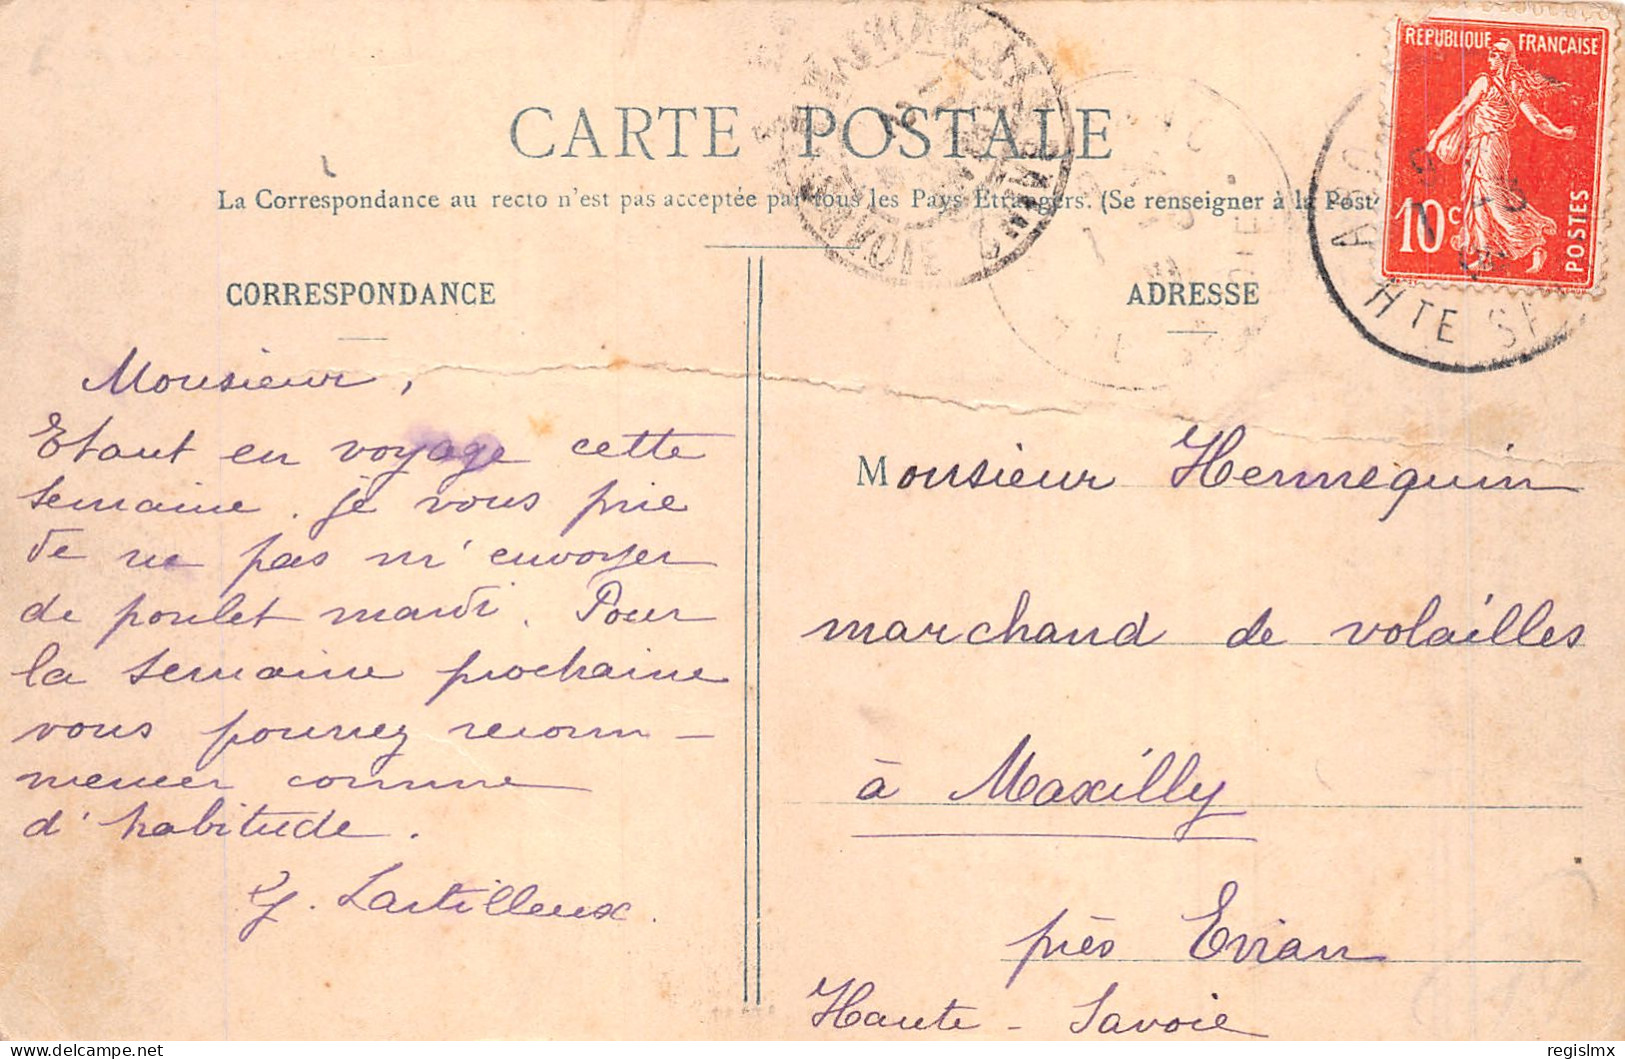 CARTE POSTALE
La Correspondance au recto n'est pas acceptée par tous les Pays Etrangers. (Se renseigner à la Post
CORRESPONDANCE
Monsieur,
Etant en voyage cette
semaine. je vous prie
de ne pas m'envoyer
de poulet mardi. Pour
la semaine prochaine
vous pourrez recom-
mencer comme
d'habitude.
J. Lartilleux.
REPUBLIQUE FRANÇAISE
10c POSTES
HTE SA
ADRESSE
Monsieur Hennequin
marchand de volailles
à Maxilly
près Evian
Haute-Savoie
delcampe.net
regislmx